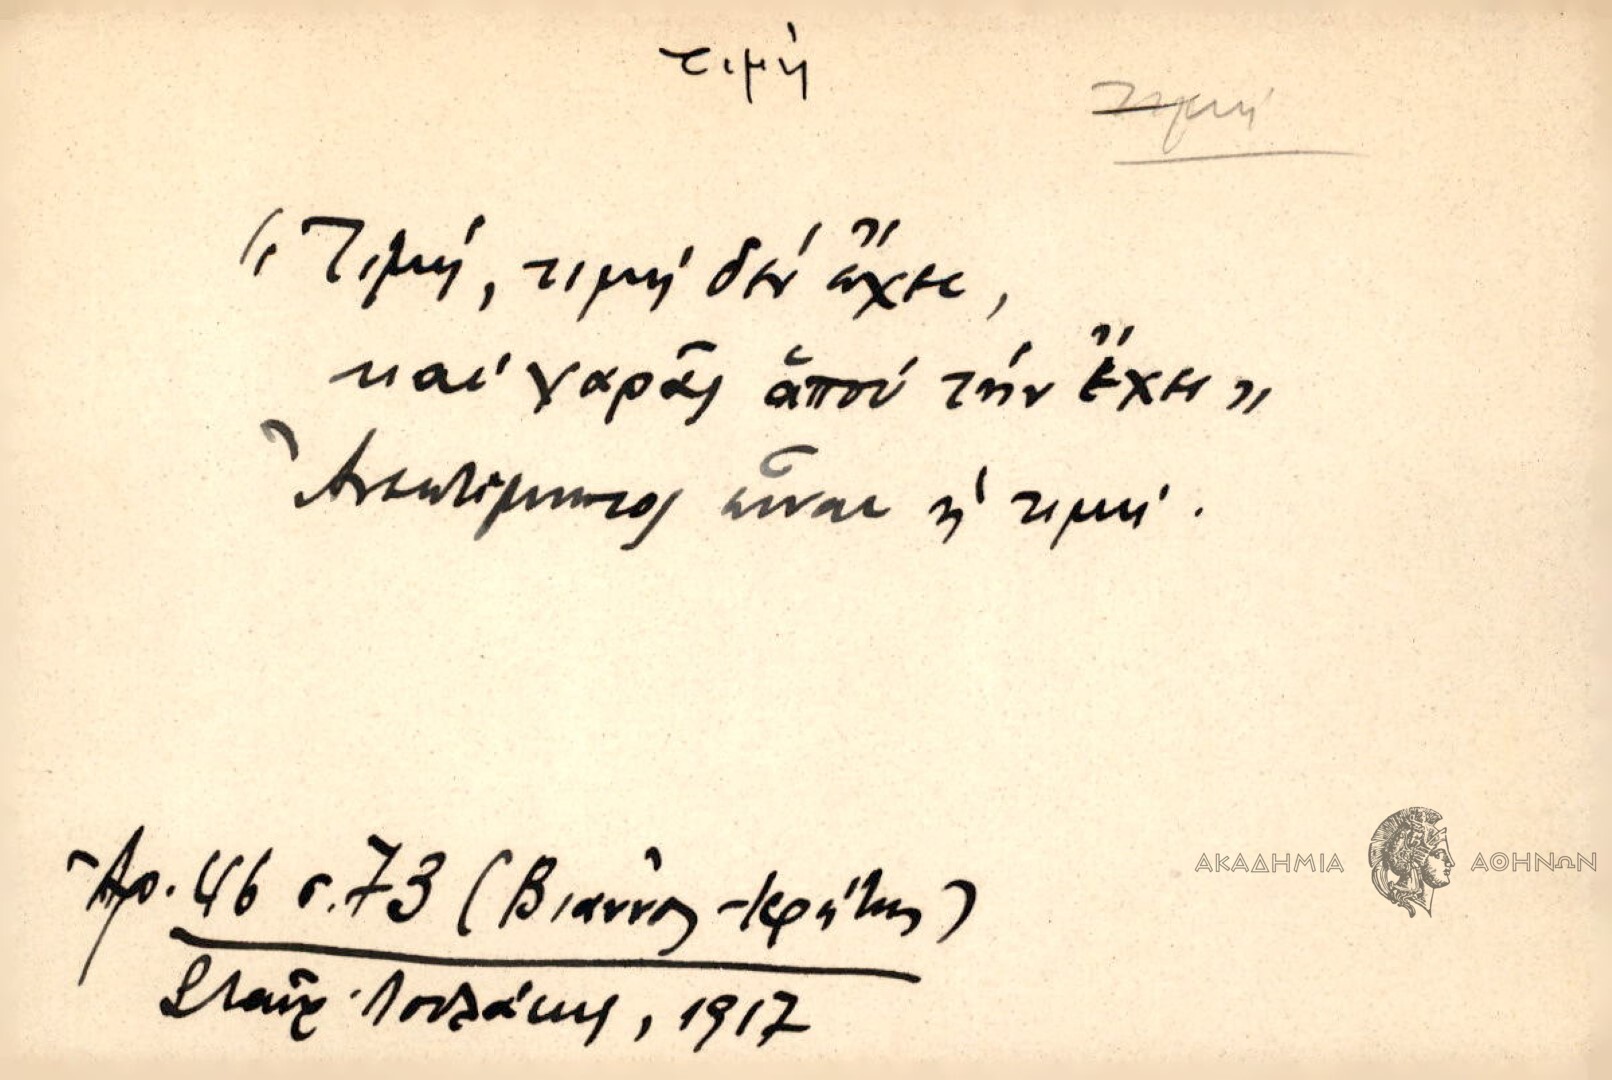 τιμή
τιμή
“Τιμή, τιμή δέν ἔχει,
καί χαρᾶς ἀπού τήν ἔχει„
Ἀνεκτίμητος εἶναι ἡ τιμή.
Ἀρ. 46 σ. 73 (Βιάννος - Κρήτης)
Σταῦρ. , 1917
ΑΚΑΔΗΜΙΑ ΑΘΗΝΩΝ